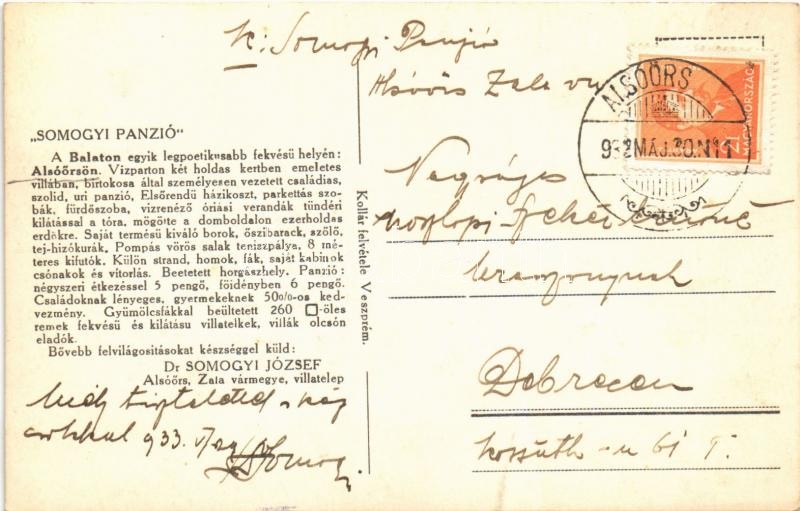 k: Somogyi Panzió
Alsóőrs Zala vm
ALSÓŐRS
932 MÁJ. 30. N 11
MAGYARORSZÁG
„SOMOGYI PANZIÓ"
A Balaton egyik legpoetikusabb fekvésü helyén:
Alsóőrsön. Vizparton két holdas kertben emeletes
villában, birtokosa által személyesen vezetett családias,
szolid, uri panzió, Elsőrendü házikoszt, parkettás szo-
bák, fürdőszoba, vizrenéző óriási verandák tündéri
kilátással a tóra, mögötte a domboldalon ezerholdas
erdőkre. Saját termésü kiváló borok, őszibarack, szőlő,
tej-hizókúrák. Pompás vörös salak teniszpálya, 8 mé-
teres kifutók. Külön strand, homok, fák, saját kabinok
csónakok és vitorlás. Beetetett horgászhely. Panzió:
négyszeri étkezéssel 5 pengő, főidényben 6 pengő.
Családoknak lényeges, gyermekeknek 50%-os ked-
vezmény. Gyümölcsfákkal beültetett 260 □-öles
remek fekvésü és kilátásu villatelkek, villák olcsón
eladók.
Bővebb felvilágositásokat készséggel küld:
Dr SOMOGYI JÓZSEF
Alsóőrs, Zala vármegye, villatelep
Kollár felvétele Veszprém.
Nagyságos
Debrecen
Kossuth-u 61
933.